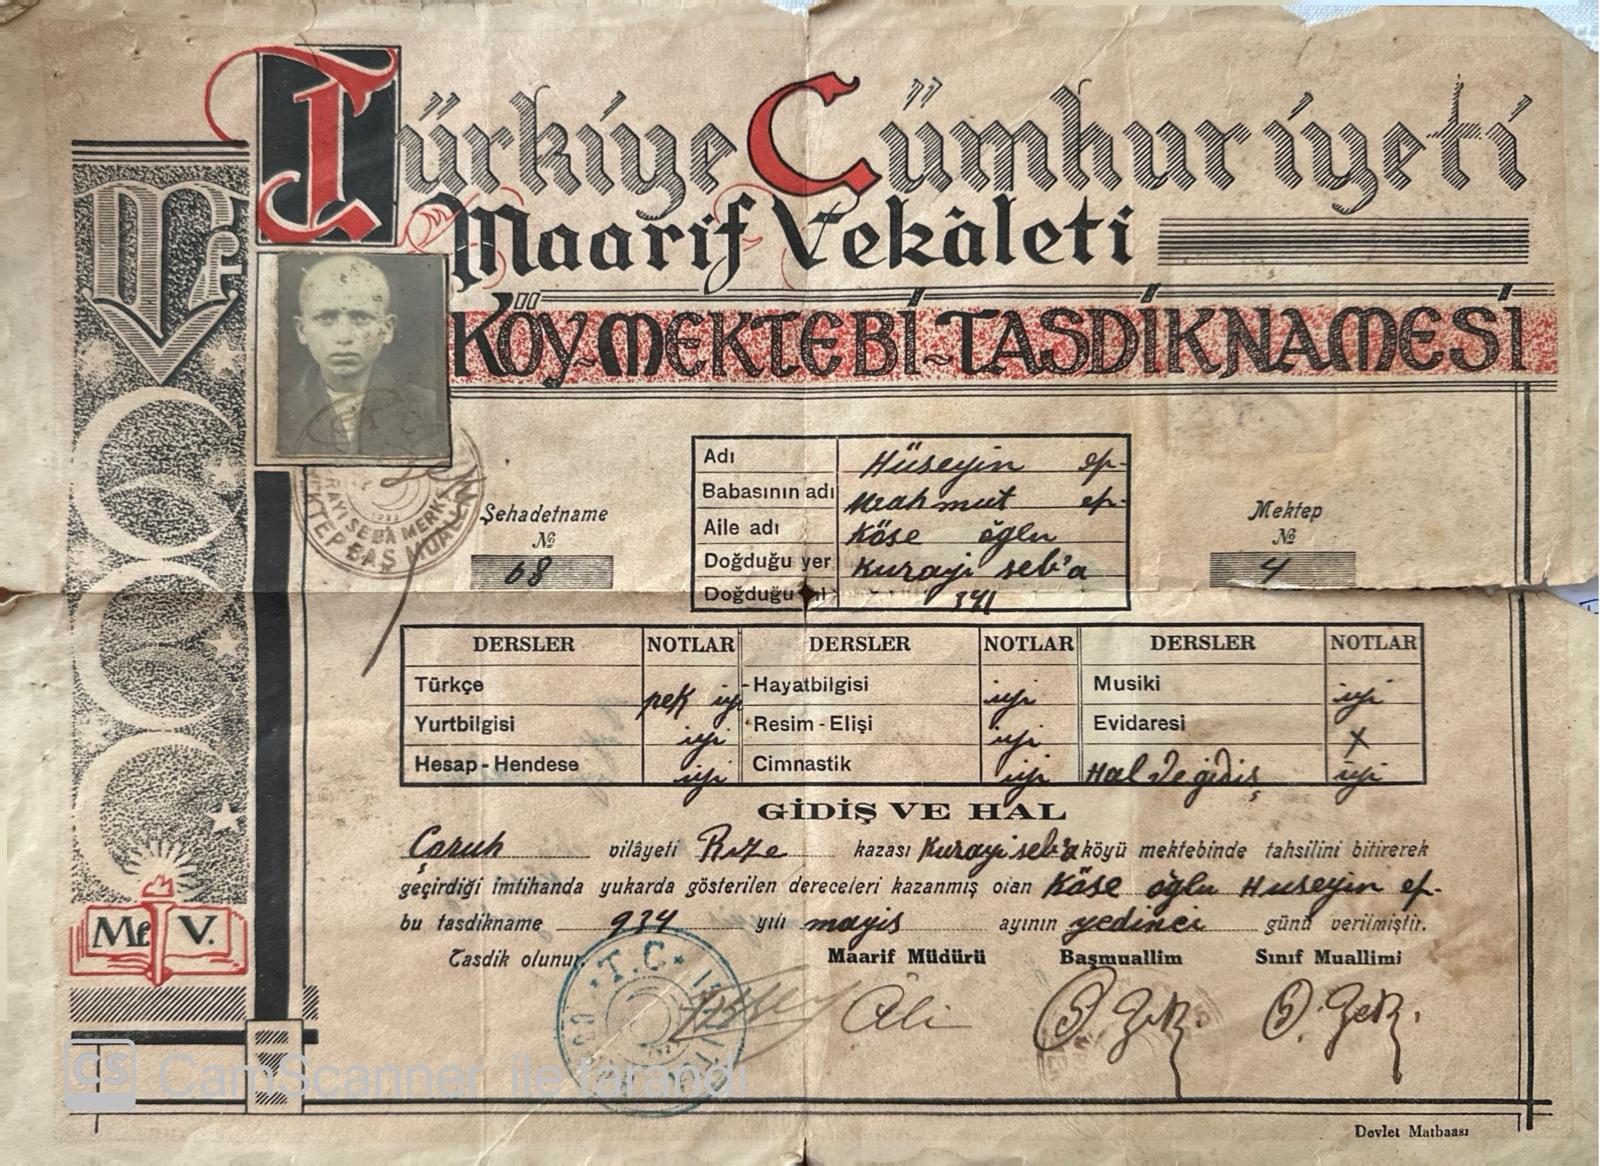 Türkiye Cümhuriyeti
Maarif Vekâleti
KÖY-MEKTEBİ-TASDİKNAMESİ
Mf
Adı Hüseyin ef-
Babasının adı Mahmut ef-
Aile adı Köse oğlu
Doğduğu yer Kurayi seb'a
Doğduğu 341
Şehadetname
№
68
Mektep
№
4
RAYI SEBA MERK
KTEP BAŞ MUALLİM
DERSLER NOTLAR DERSLER NOTLAR DERSLER NOTLAR
Türkçe pek iyi Hayatbilgisi iyi Musiki iyi
Yurtbilgisi iyi Resim - Elişi iyi Evidaresi x
Hesap - Hendese iyi Cimnastik iyi Hal ve gidiş iyi
GİDİŞ VE HAL
Çoruh vilâyeti Rize kazası Kurayi seb'a köyü mektebinde tahsilini bitirerek
geçirdiği imtihanda yukarda gösterilen dereceleri kazanmış olan Köse oğlu Huseyin ef-
bu tasdikname 934 yılı mayis ayının yedinci günü verilmiştir.
Tasdik olunur. Maarif Müdürü Başmuallim Sınıf Muallimi
T.C.
Ali
Mf. V.
CS CamScanner ile tarandı
Devlet Matbaası